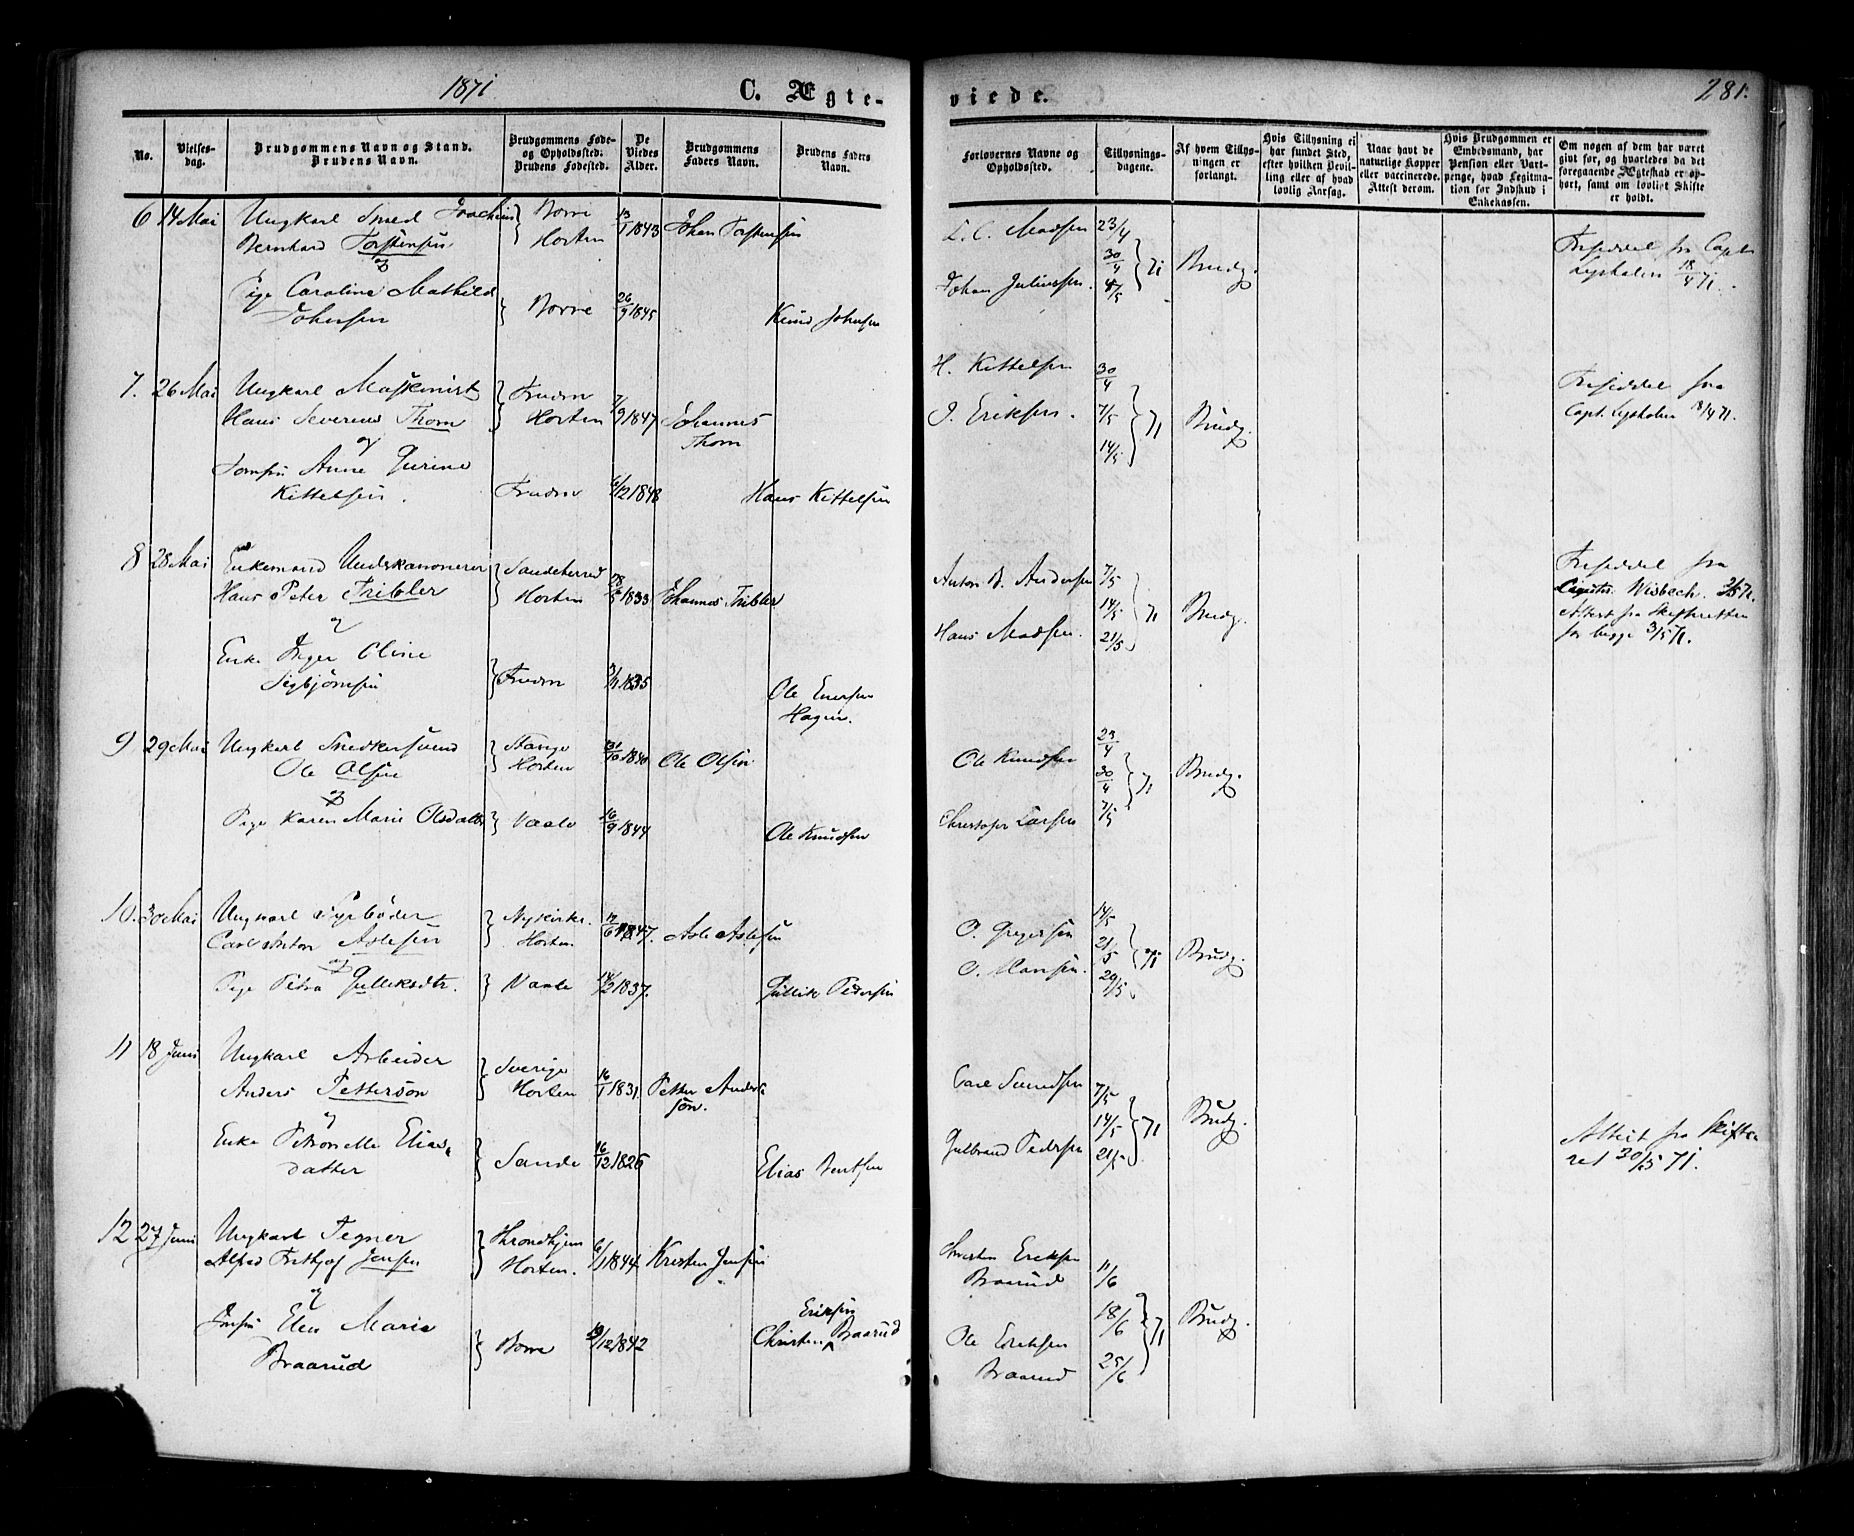 1871 C. Ægte-
No.
Vielses-
dag.
Brudgommens Navn og Stand.
Brudens Navn.
Brudgommens Føde-
og Opholdssted.
Brudens Fødested.
De
Viedes
Alder.
Brudgommens
Faders Navn.
Brudens Faders
Navn.
6 14 Mai Ungkarl Smed Joachim
Bernhard Torstensen
Borre
Horten
13/1 1843 Johan Torstensen
og
Pige Caroline Mathilde
Johnsen
Borre 26/9 1845 Knud Johnsen
7. 26 Mai Ungkarl Maskinist
Hans Severin Thorn
Horten
7/9 1847 Johannes
Thorn
og
Anne Gurine
Kittelsen.
1848 Hans Kittelsen
8 28 Mai Enkemand Underkanonerer
Hans Peter Tribler
Sandeherred
Horten
28/5 1833 Johannes Tribler
og
Enke Inger Oline
Sigbjørnsen
1835 Ole Enersen
Hagen.
9 29 Mai Ungkarl Snedkersvend
Ole Olsen
Stange
Horten
31/10 1840 Ole Olsen
og
Pige Karen Marie Olsdatter
Vaale 16/9 1844 Ole Knudsen
10. 30 Mai Ungkarl Fyrbøder
Carl Anton Aslesen
Nykirke.
Horten
1847. Asle Aslesen
og
Pige Petra Gulliksdtr.
Vaale 14/2 1837. Gullik Pedersen
11 18 Juni Ungkarl Arbeider
Anders Petterson
Sverige
Horten
16/1 1831. Petter Anders-
son.
og
Enke Petronelle Elias-
datter
Sande 16/12 1826 Elias Bentsen
12 27 Juni Ungkarl Tegner
Alfred Frithjof Jensen
Throndhjem
Horten.
6/1 1844 Kristen Jensen
og
Elen Marie
Braarud
Borre 1842
Eriksen
Christen Braarud
viede. 281.
Forlovernes Navne og
Opholdssted.
Tillysnings-
dagene.
Af hvem Tillys-
ningen er
forlangt.
Hvis Tillysning ei
har fundet Sted,
efter hvilken Bevil-
ling eller af hvad
lovlig Aarsag.
Naar havt de
naturlige Kopper
eller vaccinerede.
Attest derom.
Hvis Brudgommen er
Embedsmand, har
Pension eller Vart-
penge, hvad Legitima-
tion for Indskud i
Enkekassen.
Om nogen af dem har været
givt før, og hvorledes da det
foregaaende Ægteskab er op-
hørt, samt om lovligt Skifte
er holdt.
L. C. Madsen 23/4
Johan Juliussen. 30/4 71 Brudg.
Friseddel fra Capt.
18/4 71.
H. Kittelsen 30/4
O. Eriksen. 7/5 71 Brudg.
14/5
Friseddel fra
Capt. 18/4 71.
Anton B. Andersen 7/5
14/5 71 Brudg.
Hans Madsen. 21/5
Friseddel fra
Wisbech.
Attest fra Skifteretten
for begge 3/5 71.
Ole Knudsen 23/4
30/4 71 Brudg.
Christofer Larsen 7/5
O. Gregersen 14/5
21/5 71 Brudg.
O. Hansen. 29/5
Carl Svendsen 7/5
14/5 71 Brudg.
Gulbrand Pedersen 21/5
Attest fra Skifte-
ret 30/5 71.
Eriksen
Braarud 11/6
18/6 71 Brudg.
Ole Eriksen
Braarud 25/6